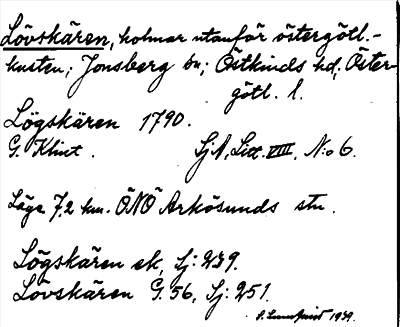 Lövskären, holmar utanför östergötl.-
kusten; Jonsberg sn; Östkinds hd, Öster-
götl. l.
Lögskären 1790.
G. Klint. SjA, Litt. VIII, N:o 6.
Läge 7,2 km. ÖNÖ Arkösunds stn.
Lögskären ek, Sj: 239.
Lövskären G. 56, Sj: 251.
S. Lundqvist 1939.